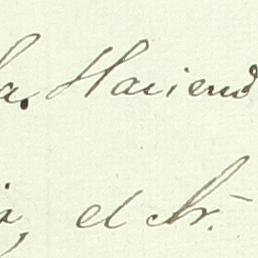 la Haciend
a, el Sr.